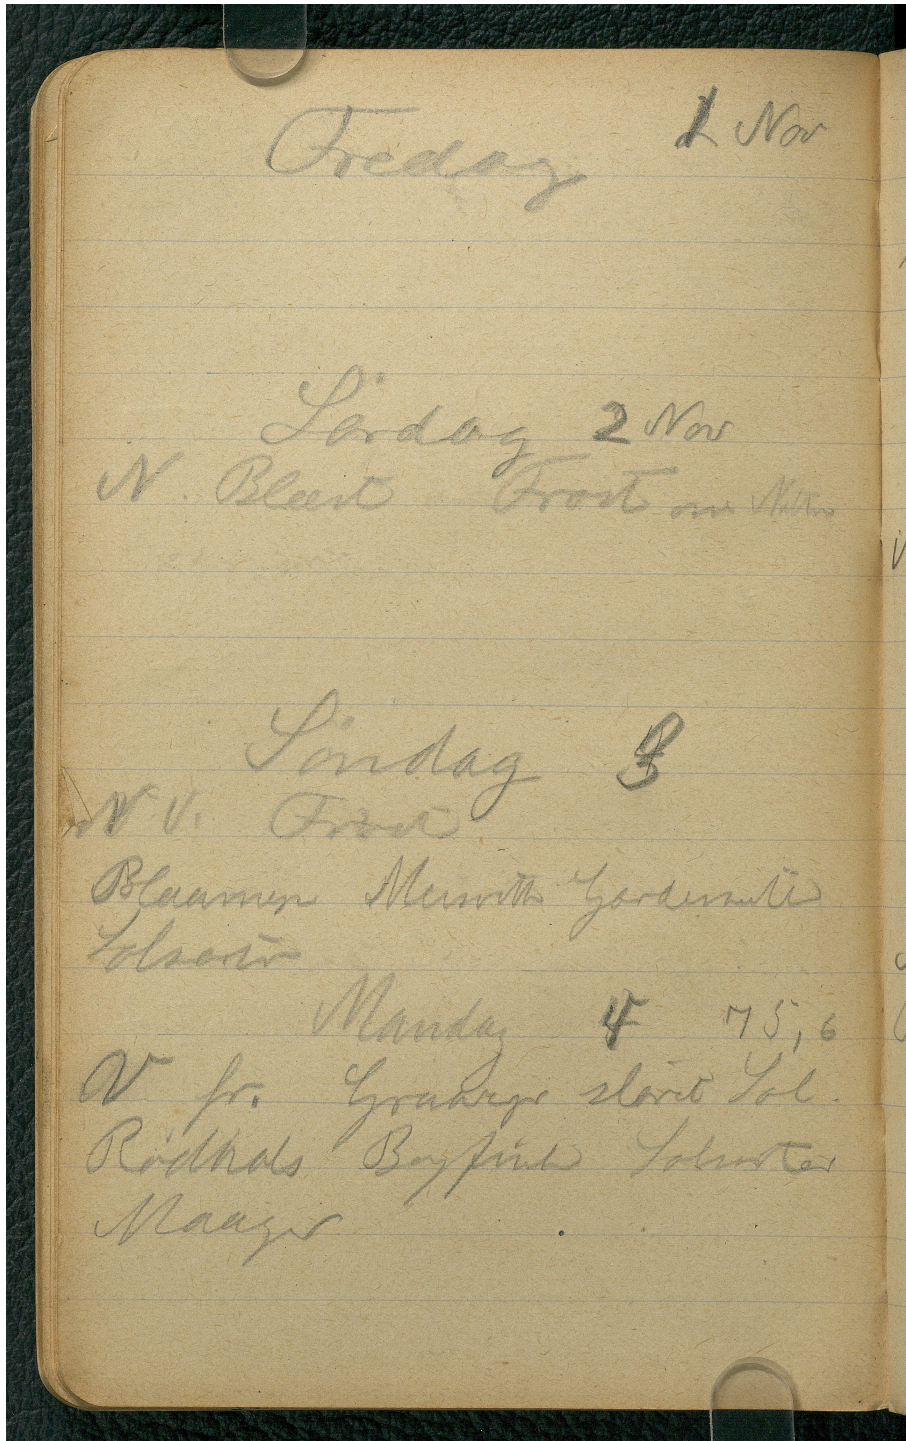 Fredag 1 Nov
Lørdag 2 Nov
N. Blæst Frost om Natten
Søndag 3
N.V. Frost
Blaamejse Musvit Gærdesmutte
Solsorte
Mandag 4 75,6
V fr. Graavejr sløret Sol.
Rødhals Bogfinke Solsorter
Maager